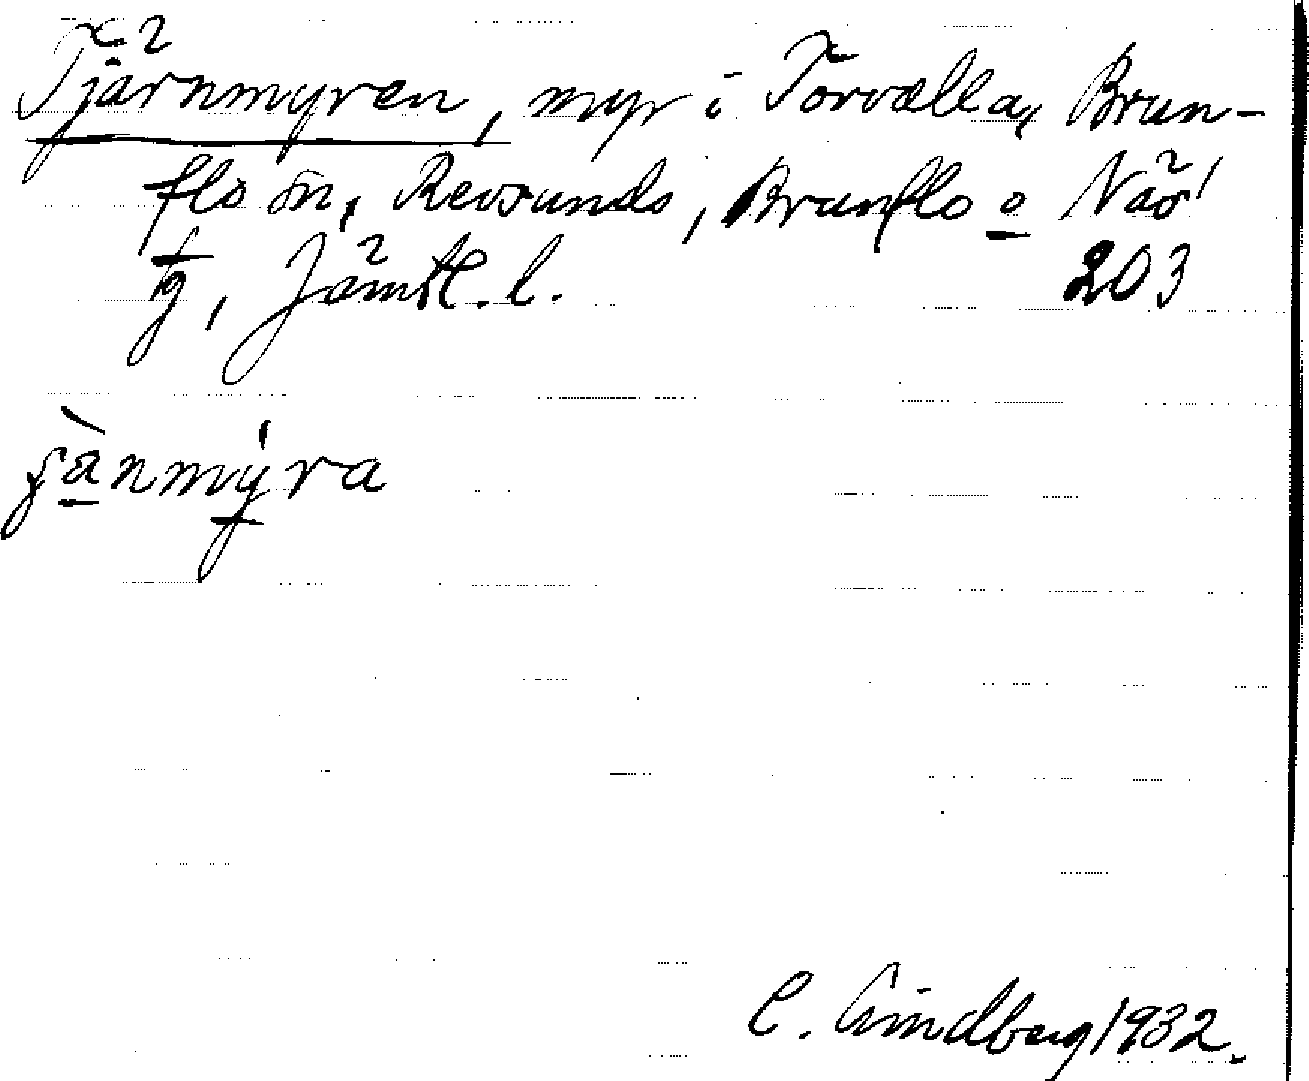 Tjärnmyren, myr i Torvalla, Brun-
flo sn, Revsunds, Brunflo o Näs'
tg, Jämtl. l. 203
fànmýra
C. Lindberg 1932.